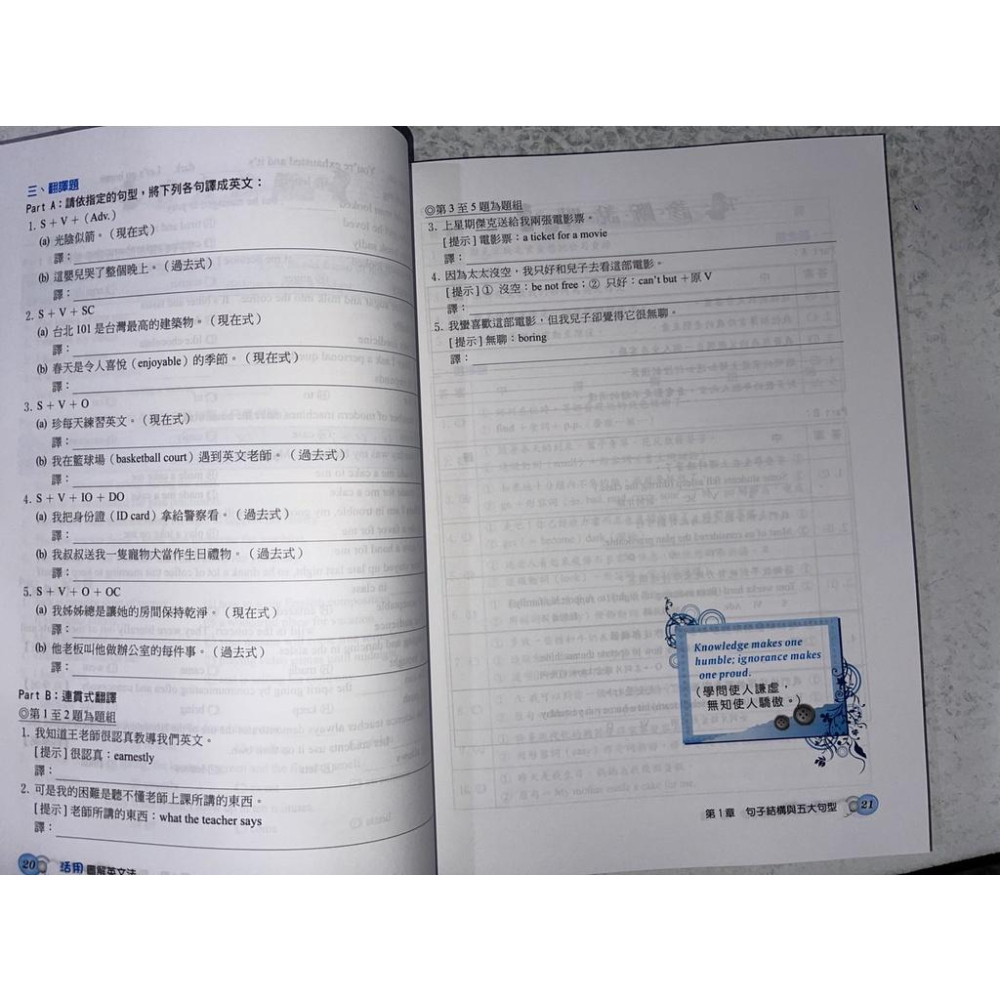 三、翻譯題
Part A：請依指定的句型，將下列各句譯成英文：
1. S + V + (Adv.)
(a) 光陰似箭。(現在式)
譯：
(b) 這嬰兒哭了整個晚上。(過去式)
譯：
2. S + V + SC
(a) 台北 101 是台灣最高的建築物。(現在式)
譯：
(b) 春天是令人喜悅 (enjoyable) 的季節。(現在式)
譯：
3. S + V + O
(a) 珍每天練習英文。(現在式)
譯：
(b) 我在籃球場 (basketball court) 遇到英文老師。(過去式)
譯：
4. S + V + IO + DO
(a) 我把身份證 (ID card) 拿給警察看。(過去式)
譯：
(b) 我叔叔送我一隻寵物犬當作生日禮物。(過去式)
譯：
5. S + V + O + OC
(a) 我姊姊總是讓她的房間保持乾淨。(現在式)
譯：
(b) 他老板叫他做辦公室的每件事。(過去式)
譯：
Part B：連貫式翻譯
◎第 1 至 2 題為題組
1. 我知道王老師很認真教導我們英文。
[提示] 很認真：earnestly
譯：
2. 可是我的困難是聽不懂老師上課所講的東西。
[提示] 老師所講的東西：what the teacher says
譯：
20 活用圖解英文法
◎第 3 至 5 題為題組
3. 上星期傑克送給我兩張電影票。
[提示] 電影票：a ticket for a movie
譯：
4. 因為太太沒空，我只好和兒子去看這部電影。
[提示] ① 沒空：be not free；② 只好：can't but + 原 V
譯：
5. 我蠻喜歡這部電影，但我兒子卻覺得它很無聊。
[提示] 無聊：boring
譯：
Knowledge makes one
humble; ignorance makes
one proud.
(學問使人謙虛，
無知使人驕傲。)
第 1 章 句子結構與五大句型 21